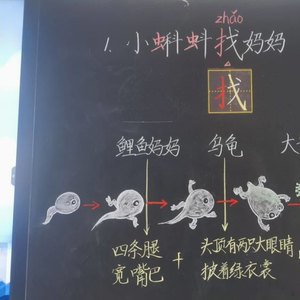 zhǎo
1. 小蝌蚪找妈妈
找
鲤鱼妈妈 乌龟 大
四条腿 + 头顶有两只大眼睛
宽嘴巴 披着绿衣裳